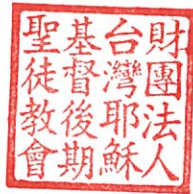 財團法人
台灣耶穌
基督後期
聖徒教會